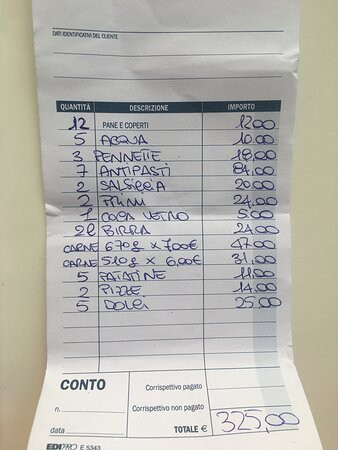 DATI IDENTIFICATIVI DEL CLIENTE
QUANTITÀ DESCRIZIONE IMPORTO
12 PANE E COPERTI 12,00
5 ACQUA 10,00
3 PENNETTE 18,00
7 ANTIPASTI 84,00
2 SALSICCIA 20,00
2 24,00
1 COCA VETRO 5,00
2l BIRRA 24,00
CARNE 670g x 7,00€ 47,00
CARNE 510g x 6,00€ 31,00
5 PATATINE 11,00
2 PIZZE 14,00
5 DOLCI 25,00
CONTO Corrispettivo pagato
n. Corrispettivo non pagato
data TOTALE € 325,00
EDIPRO E 5343